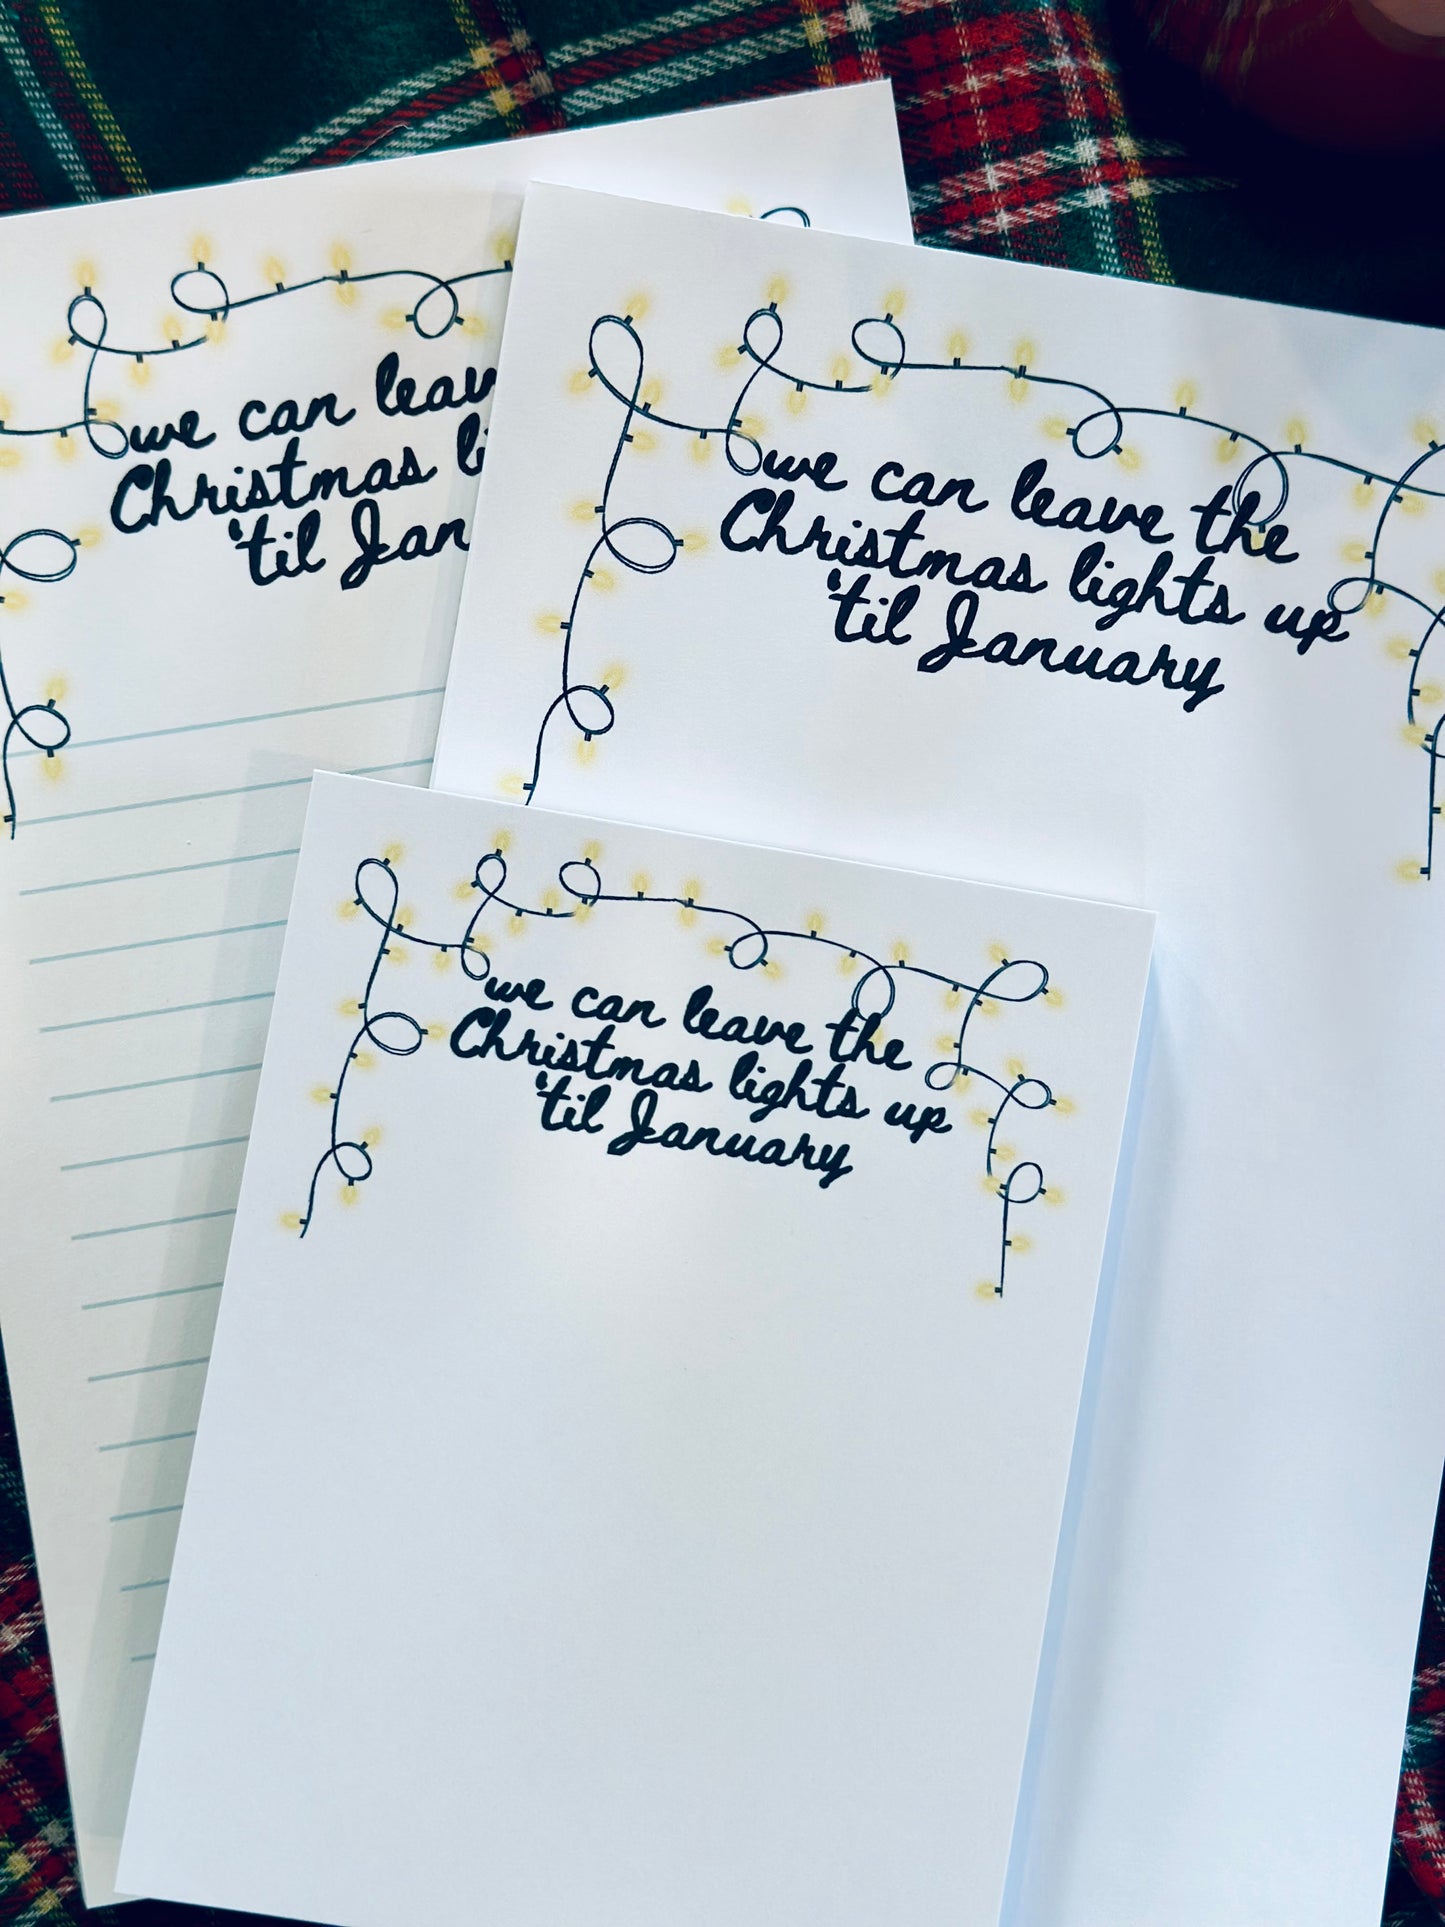 we can leav
Christmas li
'til Jan
we can leave the
Christmas lights up
'til January
we can leave the
Christmas lights up
'til January